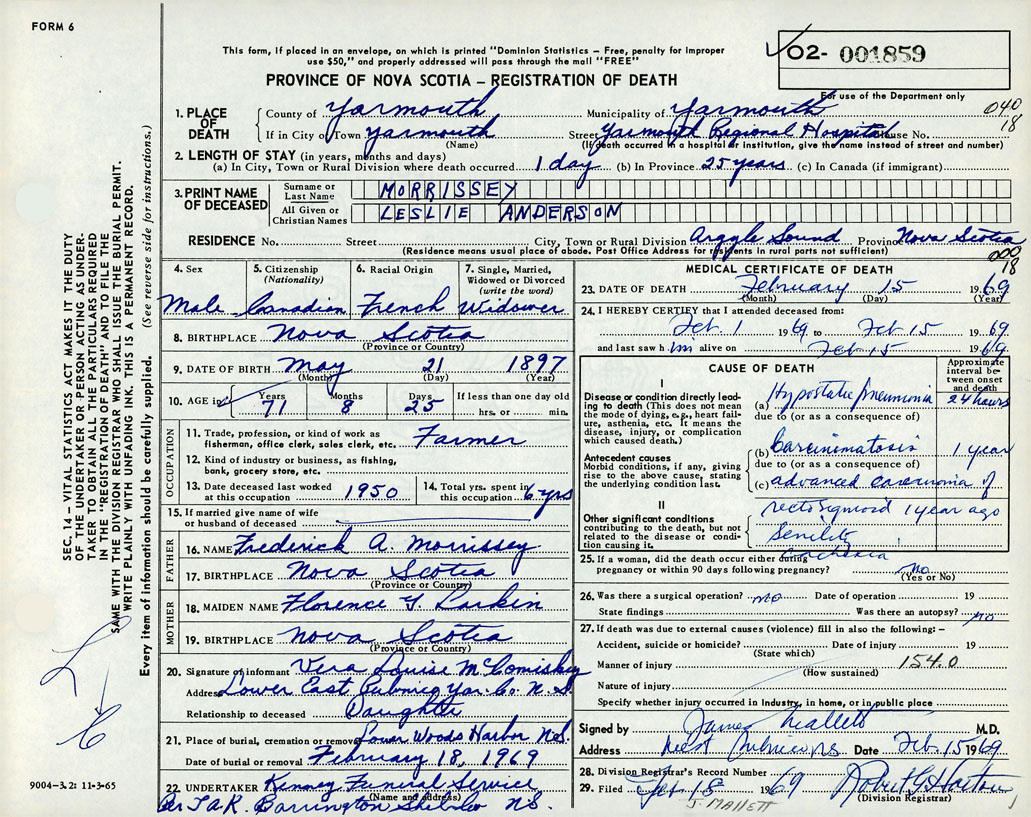 FORM 6
This form, if placed in an envelope, on which is printed "Dominion Statistics – Free, penalty for improper
use $50," and properly addressed will pass through the mail "FREE"
O2- 001859
For use of the Department only
PROVINCE OF NOVA SCOTIA – REGISTRATION OF DEATH
040
18
1. PLACE OF DEATH County of Yarmouth Municipality of Yarmouth
If in City or Town Yarmouth Street Yarmouth Regional Hospital House No.
(Name) (If death occurred in a hospital or institution, give the name instead of street and number)
2. LENGTH OF STAY (in years, months and days)
(a) In City, Town or Rural Division where death occurred 1 day (b) In Province 25 years (c) In Canada (if immigrant)
3. PRINT NAME OF DECEASED Surname or Last Name MORRISSEY
All Given or Christian Names LESLIE ANDERSON
RESIDENCE No. Street City, Town or Rural Division Argyle Sound Province Nova Scotia
(Residence means usual place of abode. Post Office Address for residents in rural parts not sufficient)
000
18
4. Sex 5. Citizenship (Nationality) 6. Racial Origin 7. Single, Married, Widowed or Divorced (write the word)
Male Canadian French Widower
8. BIRTHPLACE Nova Scotia
(Province or Country)
9. DATE OF BIRTH May 21 1897
(Month) (Day) (Year)
10. AGE in Years Months Days If less than one day old
71 8 25 hrs. or min.
OCCUPATION
11. Trade, profession, or kind of work as fisherman, office clerk, sales clerk, etc. Farmer
12. Kind of industry or business, as fishing, bank, grocery store, etc.
13. Date deceased last worked at this occupation 1950 14. Total yrs. spent in this occupation 6 yrs
15. If married give name of wife or husband of deceased
FATHER
16. NAME Frederick A. Morrissey
17. BIRTHPLACE Nova Scotia
(Province or Country)
MOTHER
18. MAIDEN NAME Florence Y. Larkin
19. BIRTHPLACE Nova Scotia
(Province or Country)
20. Signature of informant Vera Louise McComiskey
Address Lower East Pubnico Yar. Co. N.S.
Relationship to deceased Daughter
21. Place of burial, cremation or removal Lower Woods Harbor N.S.
Date of burial or removal February 18, 1969
22. UNDERTAKER Kenney Funeral Service
(Name and address)
Barrington Shelb. N.S.
MEDICAL CERTIFICATE OF DEATH
23. DATE OF DEATH February 15 1969
(Month) (Day) (Year)
24. I HEREBY CERTIFY that I attended deceased from:
Feb. 1 1969 to Feb 15 1969
and last saw him alive on Feb 15 1969
CAUSE OF DEATH
Approximate interval between onset and death
I
Disease or condition directly leading to death (This does not mean the mode of dying, e.g., heart failure, asthenia, etc. It means the disease, injury, or complication which caused death.)
(a) Hypostatic pneumonia 24 hours
due to (or as a consequence of)
Antecedent causes
Morbid conditions, if any, giving rise to the above cause, stating the underlying condition last.
(b) Carcinimatosis 1 year
due to (or as a consequence of)
(c) advanced carcinoma of
rectosigmoid 1 year ago
II
Other significant conditions contributing to the death, but not related to the disease or condition causing it.
Senility
Cachexia
25. If a woman, did the death occur either during pregnancy or within 90 days following pregnancy? no
(Yes or No)
26. Was there a surgical operation? no Date of operation 19
State findings Was there an autopsy? no
27. If death was due to external causes (violence) fill in also the following: –
Accident, suicide or homicide? Date of injury 19
(State which)
Manner of injury 154.0
(How sustained)
Nature of injury
Specify whether injury occurred in industry, in home, or in public place
Signed by James Mallett M.D.
Address West Pubnico NS Date Feb. 15 1969
28. Division Registrar's Record Number
29. Filed Feb 18 1969 Robert G Horton
(Division Registrar)
J. MALLETT
SEC. 14 – VITAL STATISTICS ACT MAKES IT THE DUTY
OF THE UNDERTAKER OR PERSON ACTING AS UNDER-
TAKER TO OBTAIN ALL THE PARTICULARS REQUIRED
IN THE "REGISTRATION OF DEATH" AND TO FILE THE
SAME WITH THE DIVISION REGISTRAR WHO SHALL ISSUE THE BURIAL PERMIT.
WRITE PLAINLY WITH UNFADING INK. THIS IS A PERMANENT RECORD.
Every item of information should be carefully supplied. (See reverse side for instructions.)
9004–3.2: 11-3-65